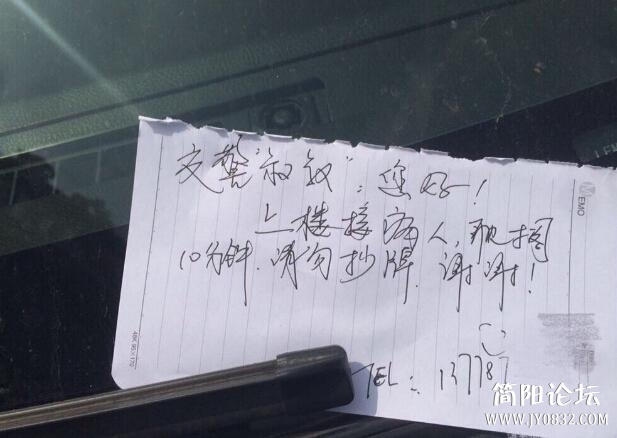 交警"叔叔"：您好！
上楼接病人，耽搁
10分钟，请勿抄牌，谢谢！
TEL：13778
MEMO
48K 95×170
简阳论坛
WWW.JY0832.COM